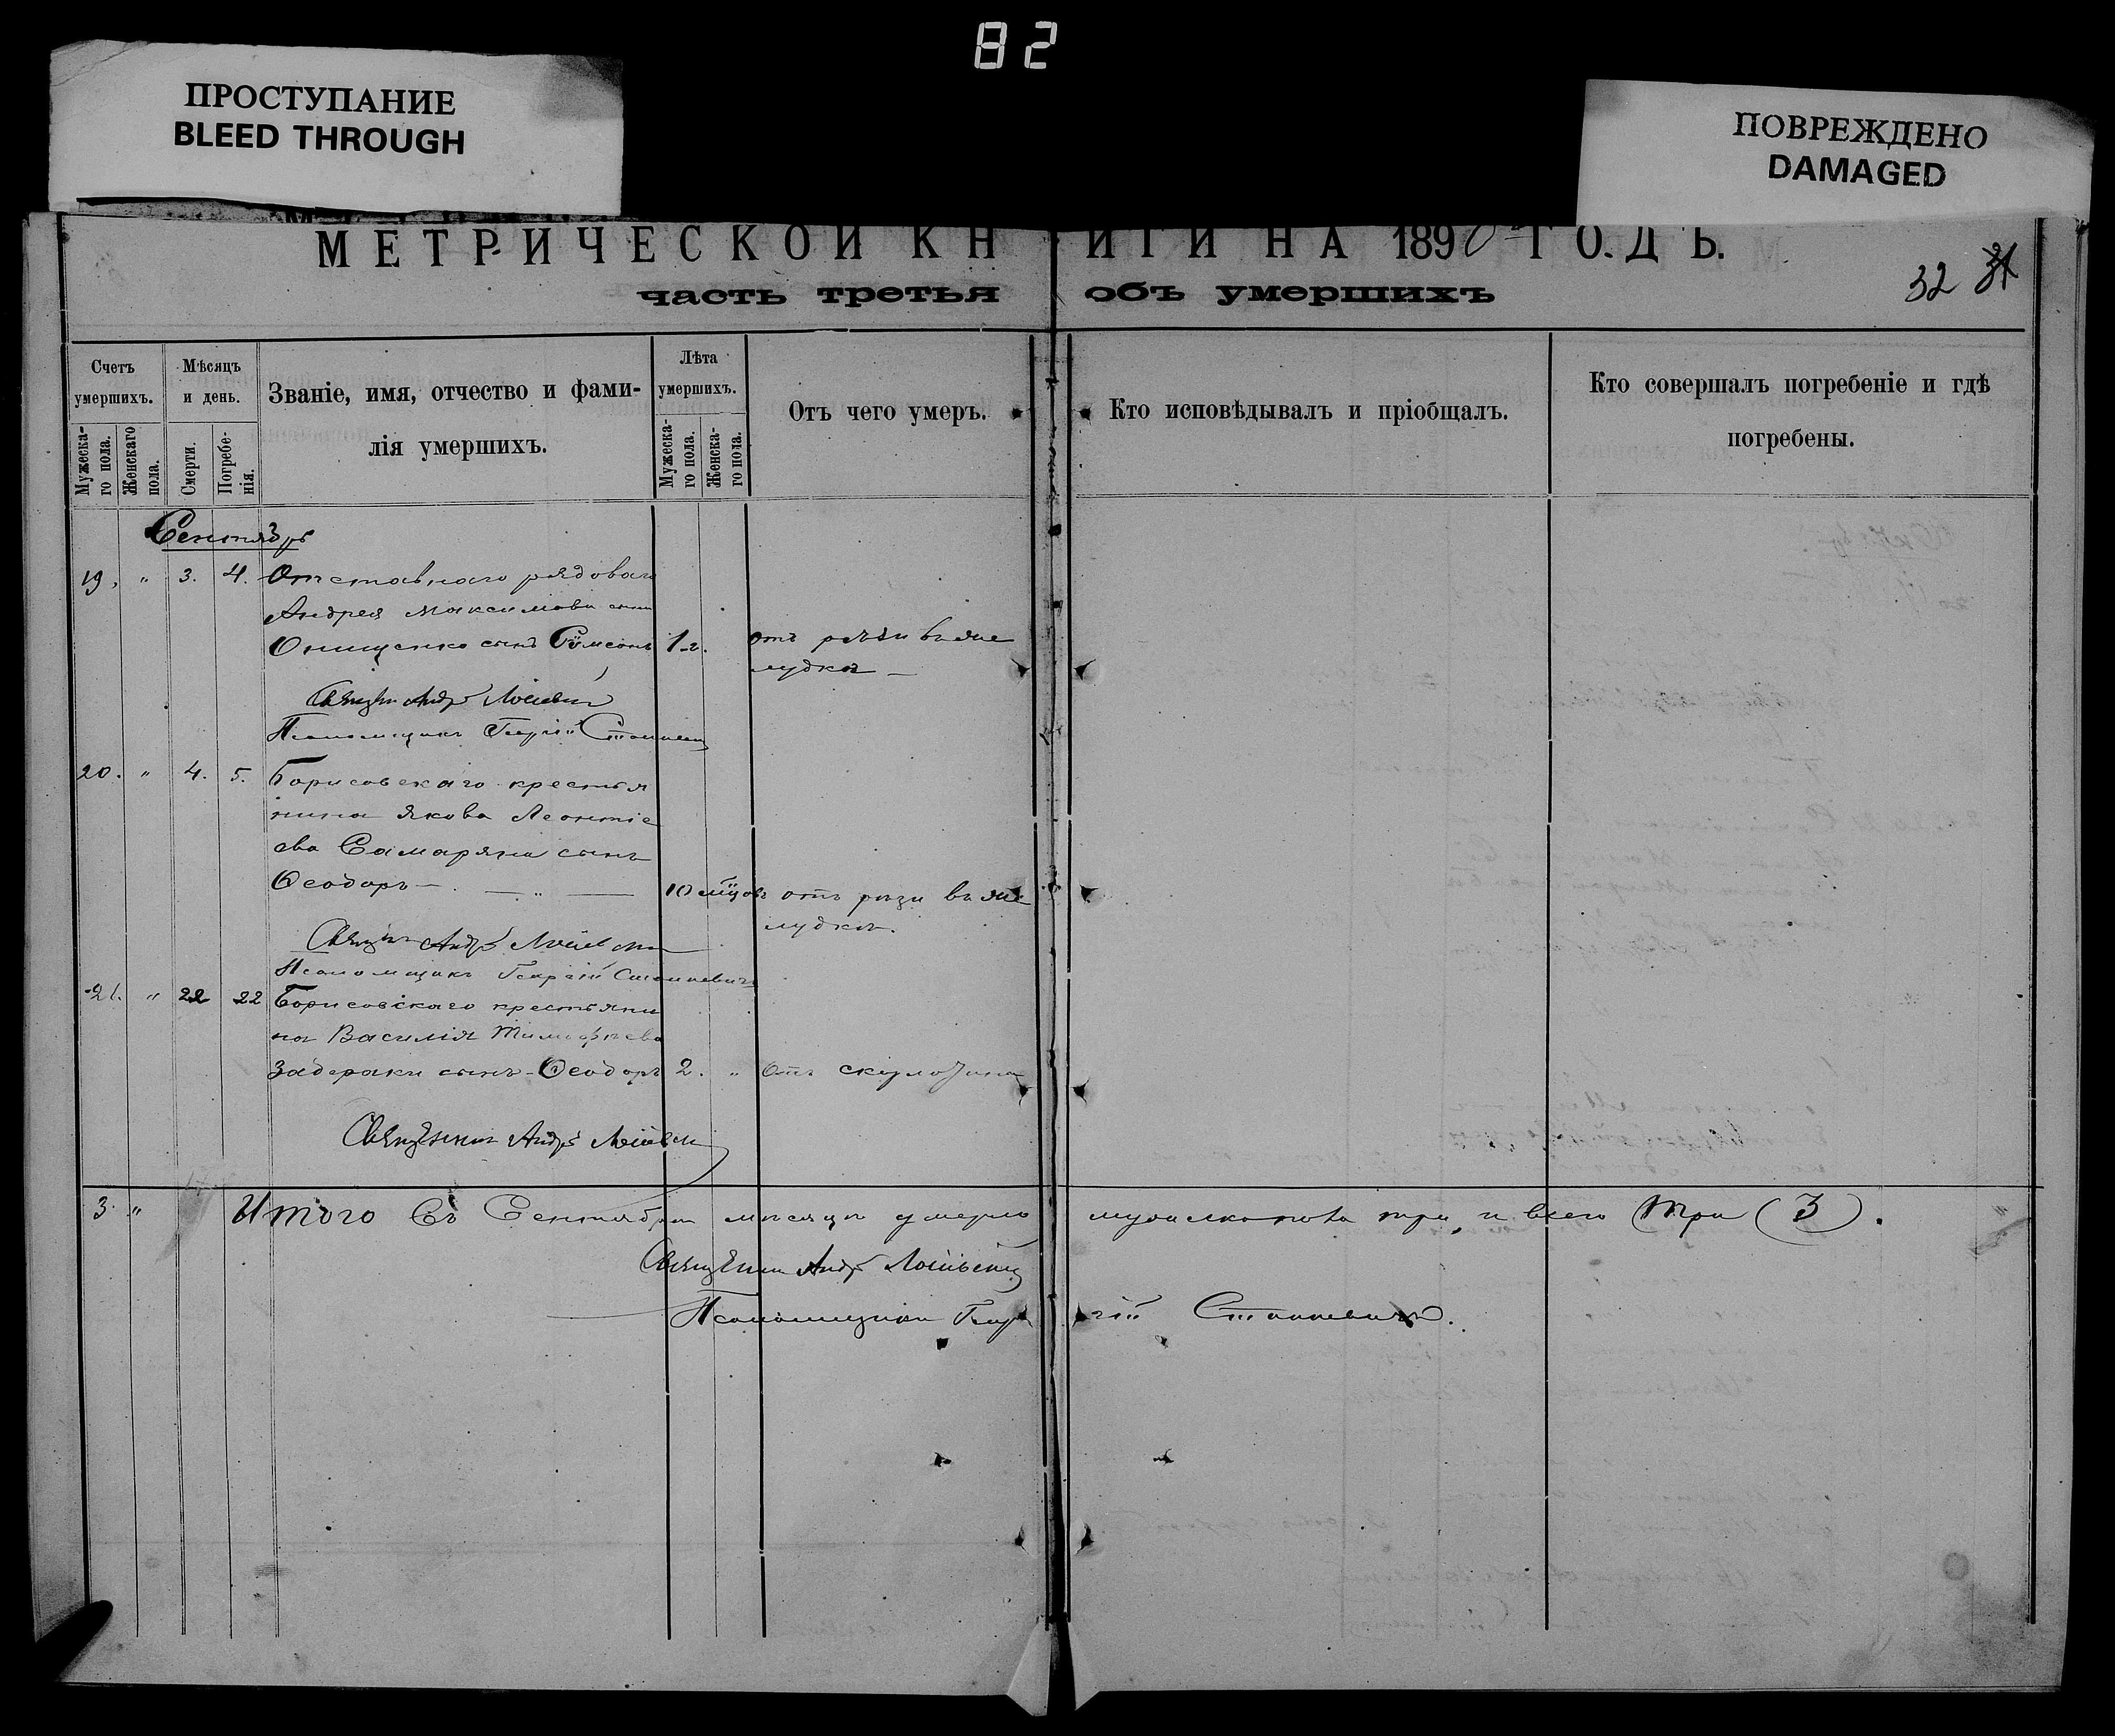 82
ПРОСТУПАНИЕ
BLEED THROUGH
ПОВРЕЖДЕНО
DAMAGED
МЕТРИЧЕСКОЙ КНИГИ НА 1890 ГОДЪ.
часть третья объ умершихъ
32 31
Счетъ умершихъ.
Мужеска-го пола.
Женскаго пола.
Мѣсяцъ и день.
Смерти.
Погребе-нія.
Званіе, имя, отчество и фами-
лія умершихъ.
Лѣта умершихъ.
Мужеска-го пола.
Женска-го пола.
Отъ чего умеръ.
Кто исповѣдывалъ и пріобщалъ.
Кто совершалъ погребеніе и гдѣ
погребены.
Сентябрь
19. " 3. 4. Отставнаго рядоваго
Андрея Максимова сына
Онищенко сынъ Сѵмеонъ 1 г. отъ рѣзи въ же
лудкѣ
Священ Андр
Псаломщикъ Георгій Станкевич
20. " 4. 5. Борисовскаго крестья
нина Якова Леонтіе
ева Самаряна сынъ
Ѳеодоръ — " — 10 мцовъ отъ рѣзи въ же
лудкѣ.
Священ Андр
Псаломщикъ Георгій Станкевичъ
21. " 22 22 Борисовскаго крестьяни
на Василія Тимофѣева
Задераки сынъ Ѳеодоръ 2. " Отъ
Священникъ Андр
3. " Итого Въ Сентябрѣ мѣсяцѣ умерло мужеска пола три, и всего три (3).
Священник Андр
Псаломщикъ Георгій Станкевичъ.